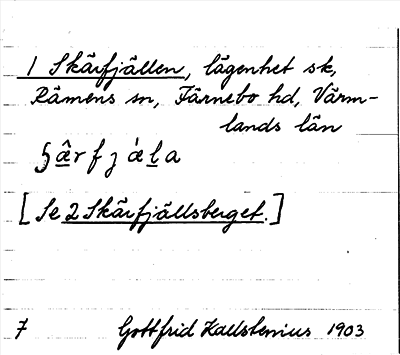 1 Skärfjällen, lägenhet sk,
Rämens sn, Färnebo hd, Värm-
lands län
ʂæ̂rfjǽḷa
[Se 2 Skärfjällsberget.]
7 Gottfrid Kallstenius 1903